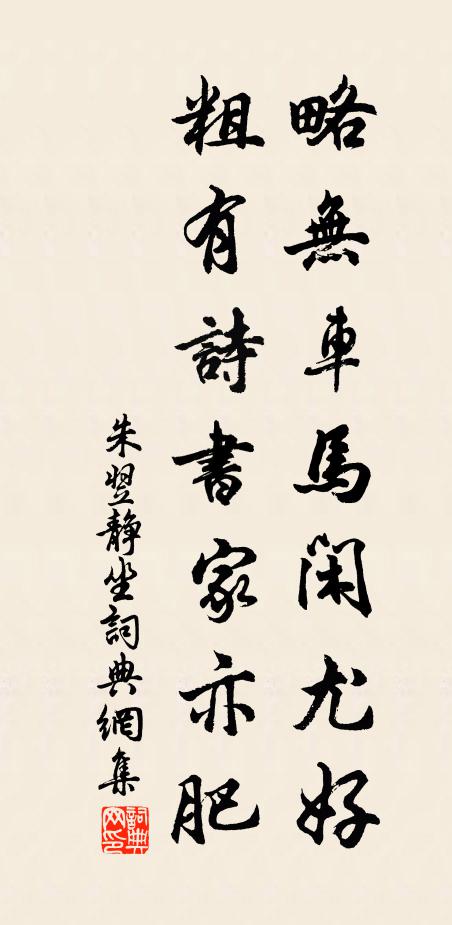 略無車馬閑尤好
粗有詩書家亦肥
朱翌靜坐詞典網集
詞典網印